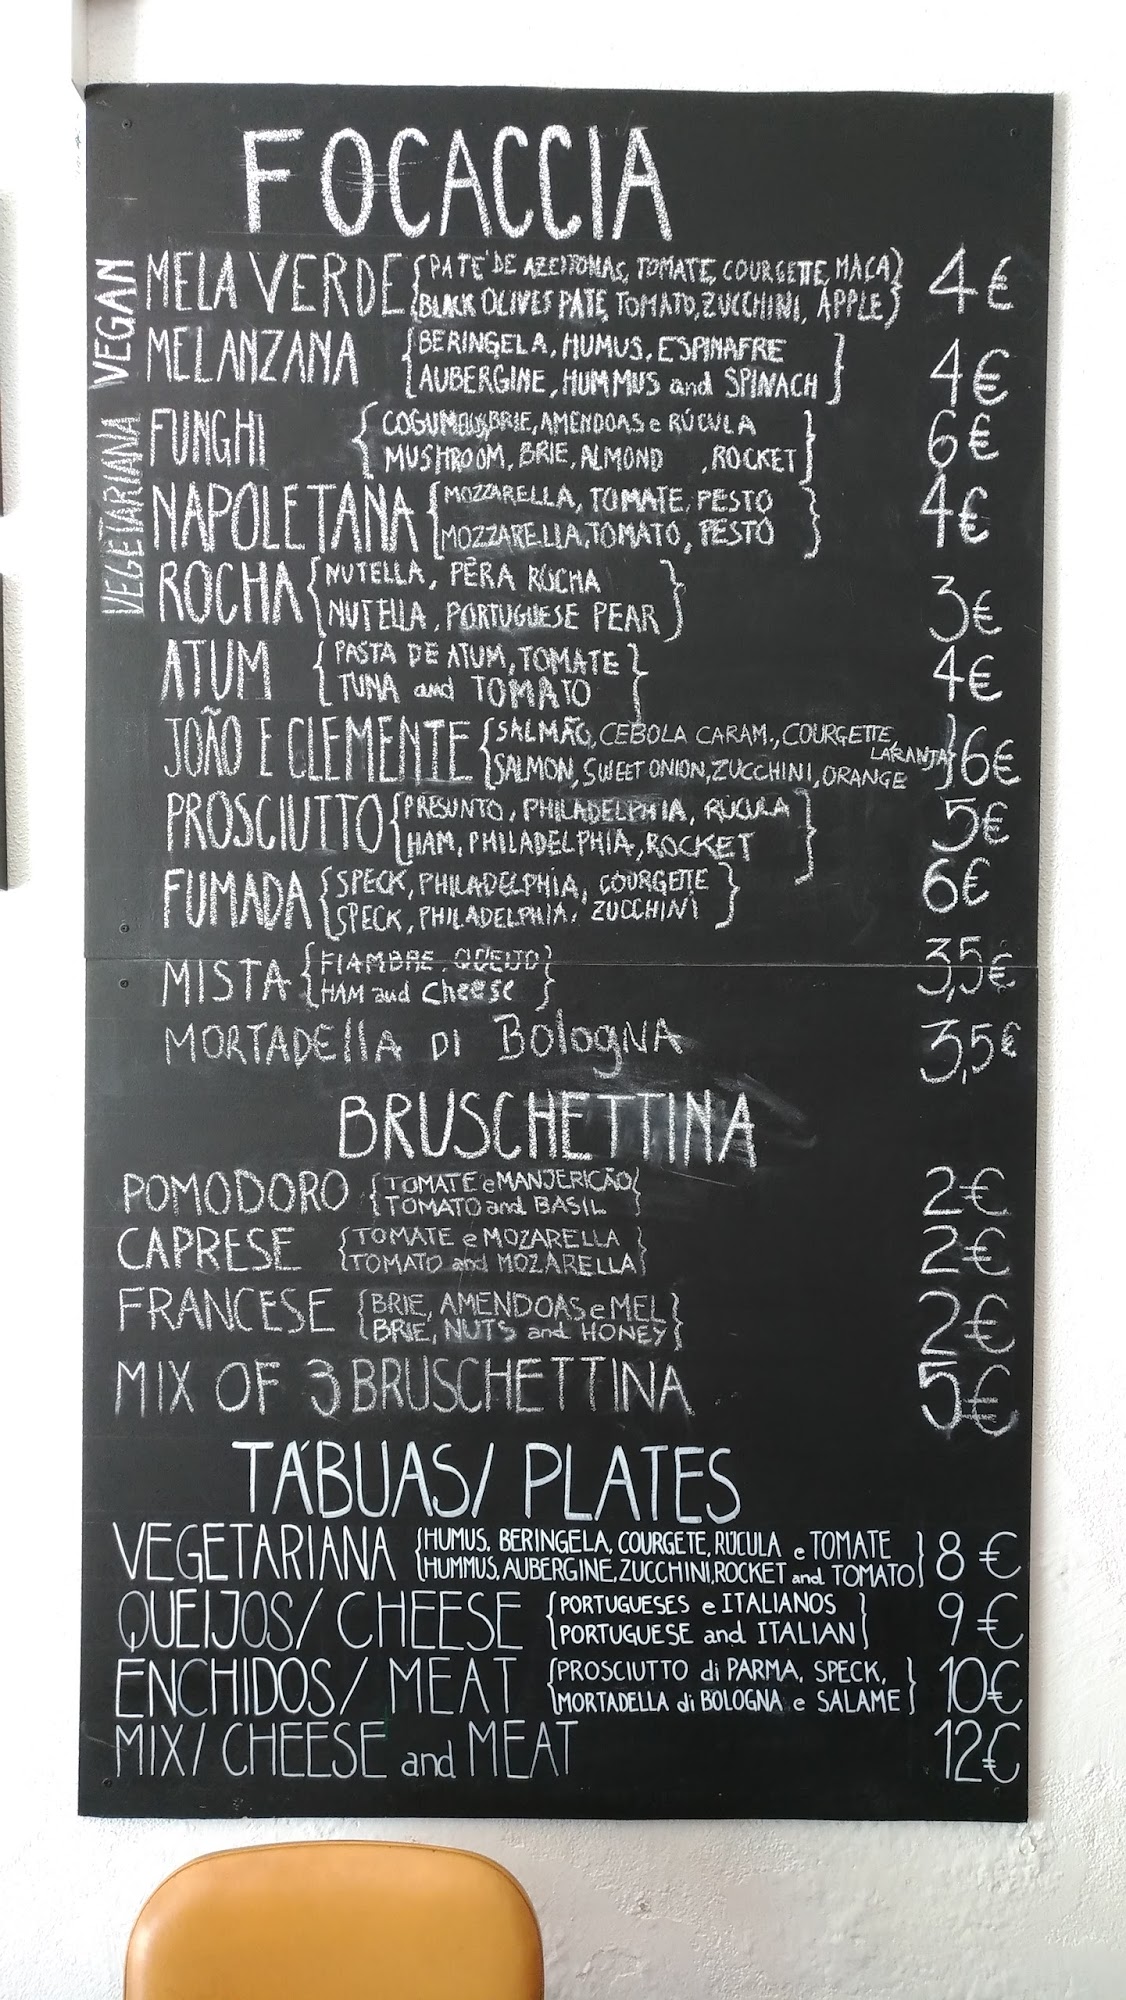 FOCACCIA
VEGAN
MELA VERDE {PATÉ DE AZEITONAS, TOMATE, COURGETTE, MAÇA} 4€
{BLACK OLIVES PATE, TOMATO, ZUCCHINI, APPLE}
MELANZANA {BERINGELA, HUMUS, ESPINAFRE} 4€
{AUBERGINE, HUMMUS and SPINACH}
VEGETARIANA
FUNGHI {COGUMELOS, BRIE, AMENDOAS e RÚCULA} 6€
{MUSHROOM, BRIE, ALMOND , ROCKET}
NAPOLETANA {MOZZARELLA, TOMATE, PESTO} 4€
{MOZZARELLA, TOMATO, PESTO}
ROCHA {NUTELLA, PÊRA ROCHA} 3€
{NUTELLA, PORTUGUESE PEAR}
ATUM {PASTA DE ATUM, TOMATE} 4€
{TUNA and TOMATO}
JOÃO E CLEMENTE {SALMÃO, CEBOLA CARAM., COURGETTE, LARANJA} 6€
{SALMON, SWEET ONION, ZUCCHINI, ORANGE
PROSCIUTTO {PRESUNTO, PHILADELPHIA, RÚCULA} 5€
{HAM, PHILADELPHIA, ROCKET
FUMADA {SPECK, PHILADELPHIA, COURGETTE} 6€
{SPECK, PHILADELPHIA, ZUCCHINI
MISTA {FIAMBRE, QUEIJO} 3,5€
{HAM and Cheese}
MORTADEllA DI BologNA 3,5€
BRUSCHETTINA
POMODORO {TOMATE e MANJERICÃO} 2€
{TOMATO and BASIL
CAPRESE {TOMATE e MOZARELLA} 2€
{TOMATO and MOZARELLA}
FRANCESE {BRIE, AMENDOAS e MEL} 2€
{BRIE, NUTS and HONEY}
MIX OF 3 BRUSCHETTINA 5€
TÁBUAS/ PLATES
VEGETARIANA {HUMUS, BERINGELA, COURGETE, RÚCULA e TOMATE} 8€
{HUMMUS, AUBERGINE, ZUCCHINI, ROCKET and TOMATO}
QUEIJOS/ CHEESE {PORTUGUESES e ITALIANOS} 9€
{PORTUGUESE and ITALIAN}
ENCHIDOS/ MEAT {PROSCIUTTO di PARMA, SPECK,} 10€
{MORTADELLA di BOLOGNA e SALAME}
MIX/ CHEESE and MEAT 12€